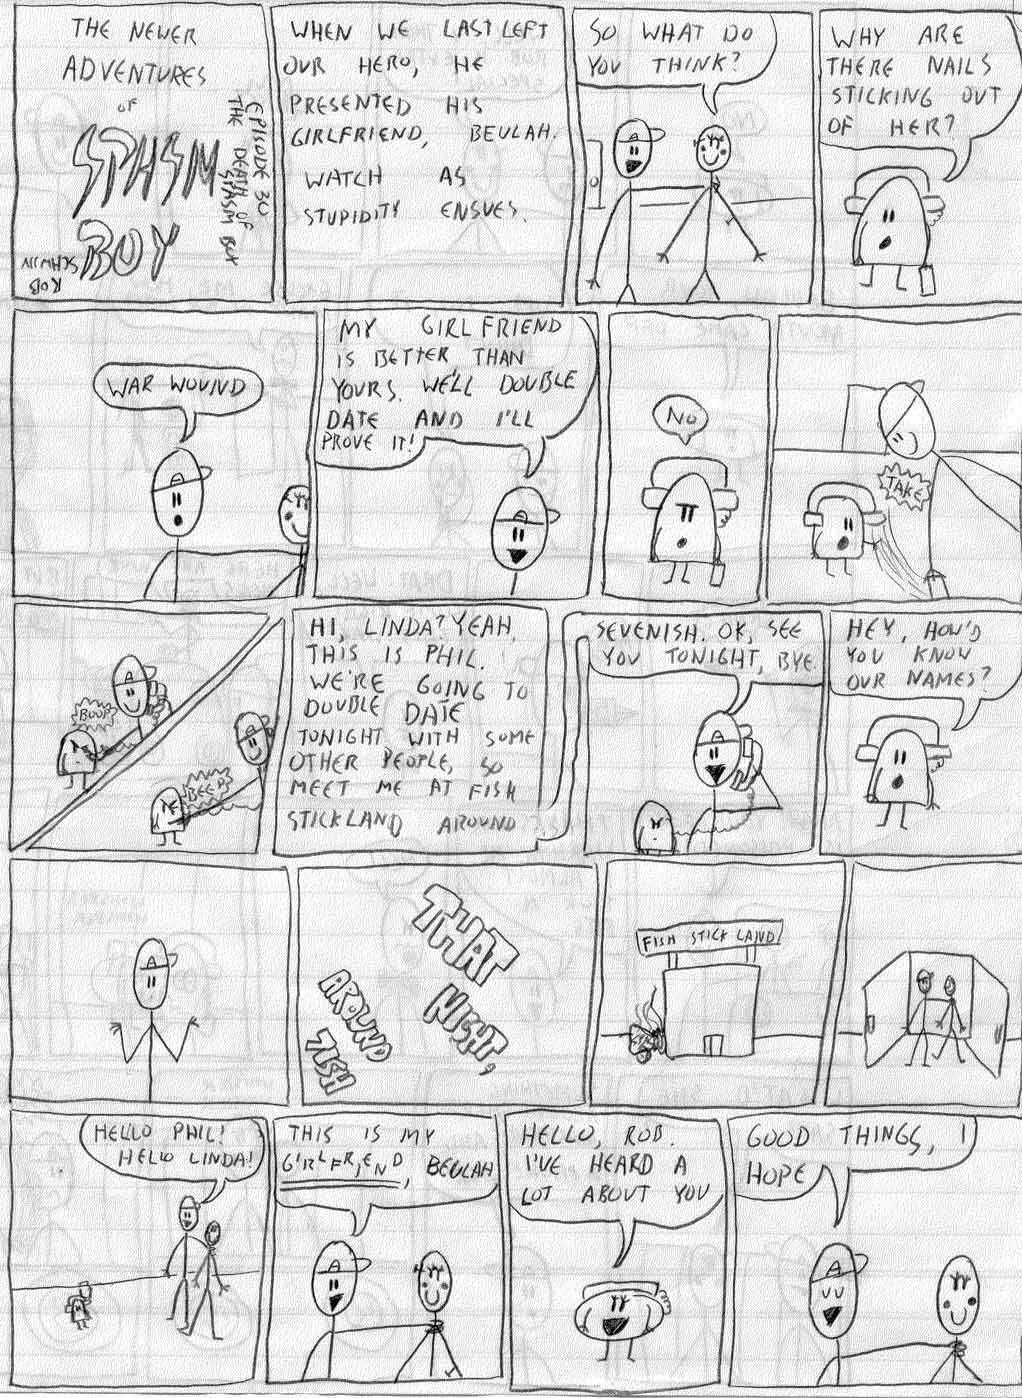 THE NEWER
ADVENTURES
OF
SPASM
BOY
EPISODE 30
THE DEATH OF
SPASM BOY
ROB
SCHWIN
WHEN WE LAST LEFT
OUR HERO, HE
PRESENTED HIS
GIRLFRIEND, BEULAH.
WATCH AS
STUPIDITY ENSUES.
SO WHAT DO
YOU THINK?
WHY ARE
THERE NAILS
STICKING OUT
OF HER?
WAR WOUND
MY GIRLFRIEND
IS BETTER THAN
YOURS. WE'LL DOUBLE
DATE AND I'LL
PROVE IT!
NO
TAKE
BOOP
BEEP
HI, LINDA? YEAH,
THIS IS PHIL.
WE'RE GOING TO
DOUBLE DATE
TONIGHT WITH SOME
OTHER PEOPLE, SO
MEET ME AT FISH
STICKLAND AROUND
SEVENISH. OK, SEE
YOU TONIGHT, BYE.
HEY, HOW'D
YOU KNOW
OUR NAMES?
THAT
NIGHT,
AROUND
7ISH
FISH STICK LAND
HELLO PHIL!
HELLO LINDA!
THIS IS MY
GIRLFRIEND, BEULAH
HELLO, ROB.
I'VE HEARD A
LOT ABOUT YOU
GOOD THINGS, I
HOPE